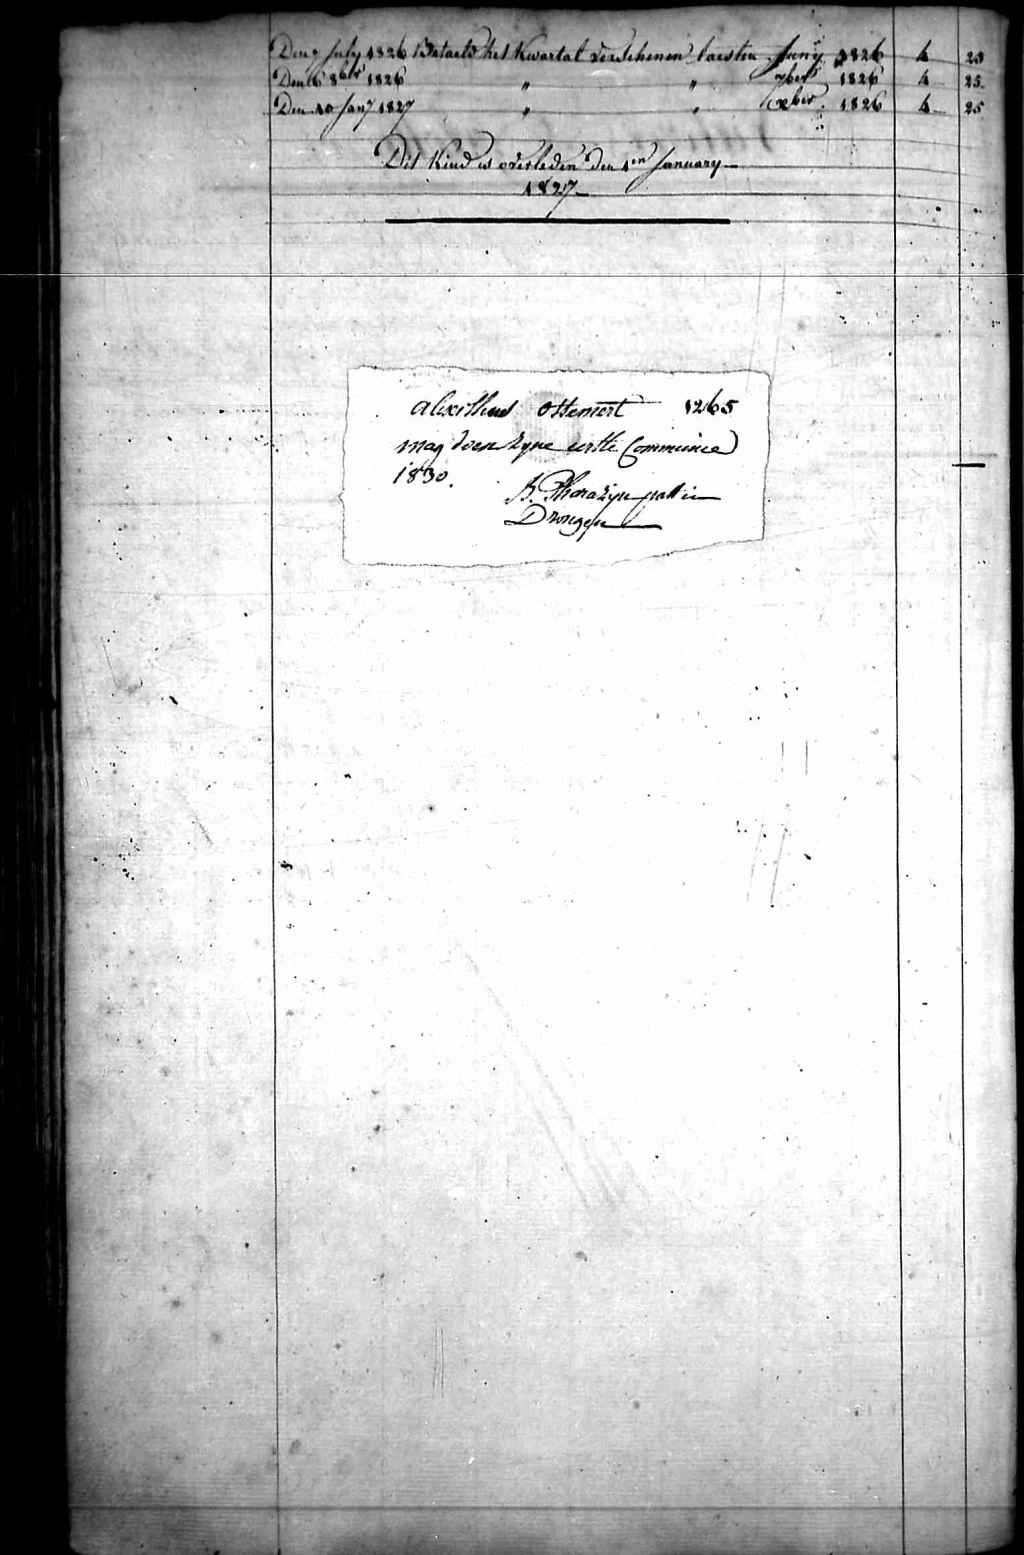 Den 7 July 1826 Betaeld het Kwartal verschenen laesten Juny 1826 4 25
Den 6 8ber 1826 " " 7ber 1826 4 25
Den 10 Jany 1827 " " Xber 1826 4 25
Dit Kind is overleden den 1en January
1827
1265
mag doen zyne eerste Communie
1830.
B. pastor
Drongen